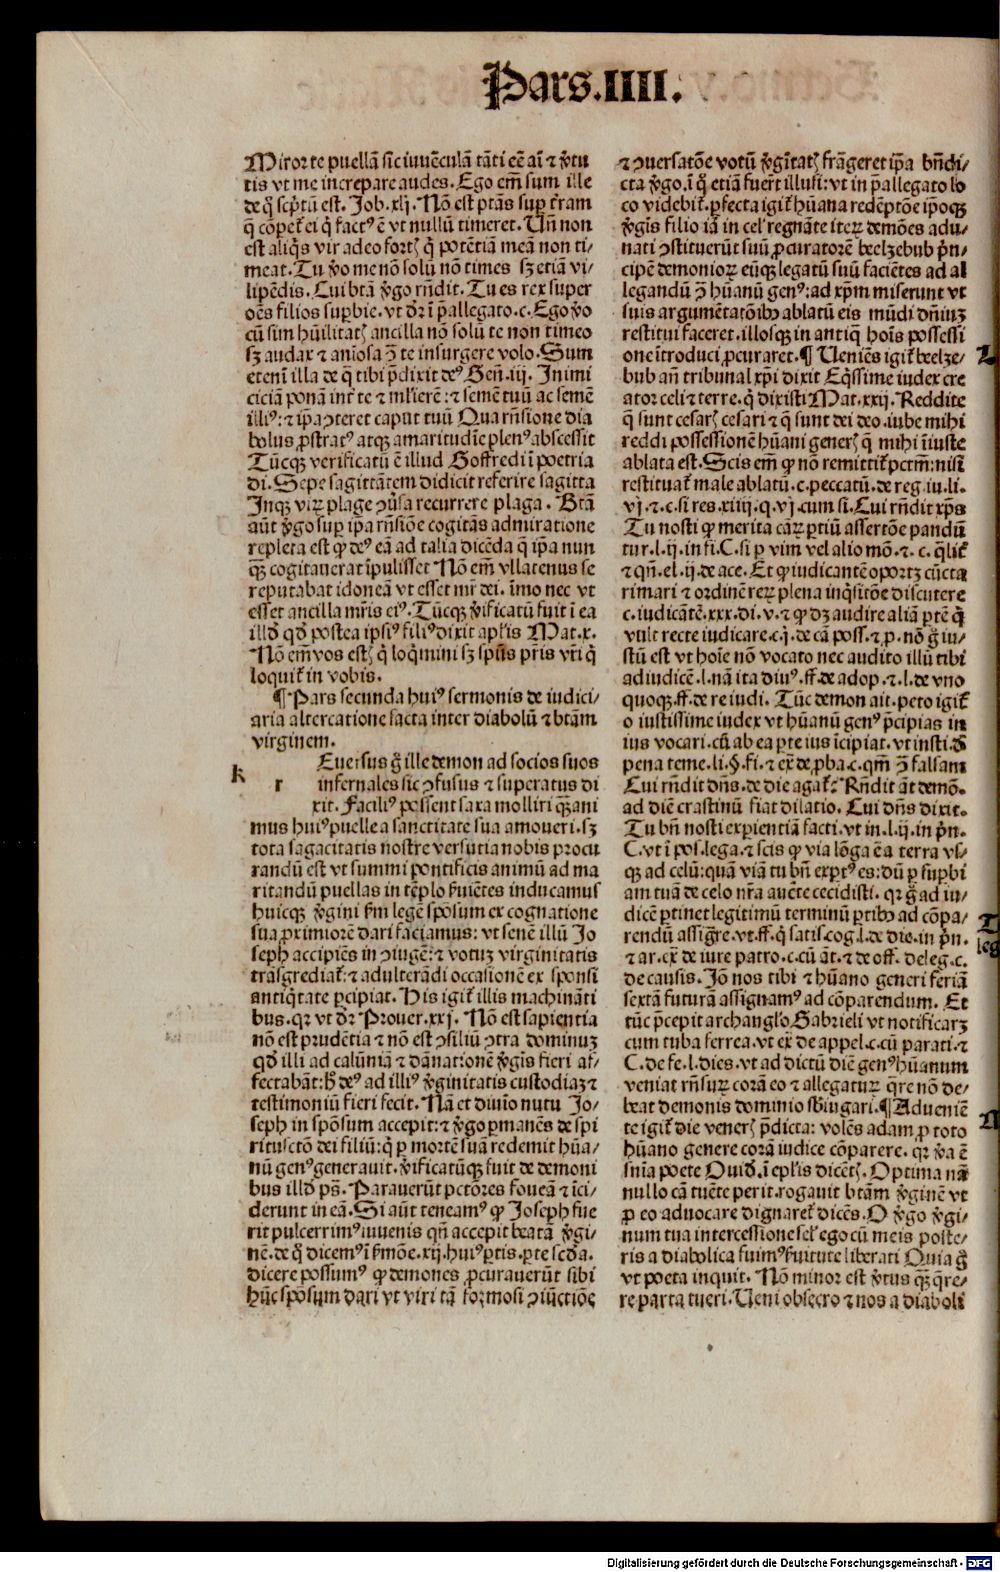 Pars.IIII.
Miror te puellā sic iuuēculā tāti eē aī ⁊ v̄tu
tis vt me increpare audes. Ego em̄ sum ille
de q̊ scp̄tū est. Job. xlj. Nō est ptās suꝑ t̄ram
q̄ cōpet̉ ei q̇ factꝰ ē vt nullū timeret. Uñ non
est aliq̇s vir adeo fort̉ q̇ potētiā meā non ti-
meat. Tu v̄o me nō solū nō times sꝫ etiā vi-
lipēdis. Cui btā v̄go rn̄dit. Tu es rex super
oēs filios suꝑbie. vt dr̄ ī p̄allegato.c. Ego v̄o
cū sim hūilitat̉ ancilla nō solū te non timeo
sꝫ audax ⁊ aniosa ꝯ̄ te insurgere volo. Sum
etenī illa de q̄ tibi p̄dixit deꝰ Geñ. iij. Inimi
ciciā ponā int̉ te ⁊ mlierē: ⁊ semē tuū ac semē
illiꝰ: ⁊ ip̄a ꝯteret caput tuū Qua rn̄sione dia
bolus ꝓstratꝰ atqꝫ amaritudīe plenꝰ abscessit
Tūcqꝫ verificatū ē illud Goffredi ī poetria
di. Sepe sagittātem didicit referire sagitta
Inqꝫ viꝝ plage ꝯūsa recurrere plaga. Btā
aūt v̄go suꝑ ip̄a rn̄siōe cogitās admiratione
repleta est ꝙ deꝰ eā ad talia dicēda q̄ ip̄a nun
qꝫ̄ cogitauerat īpulisset Nō em̄ vllatenus se
reputabat idoneā vt esset mr̄ dei. īmo nec vt
esset ancilla mr̄is eiꝰ. Tūcqꝫ v̄ificatū fuit ī ea
illđ qđ postea ipsiꝰ filiꝰ dixit apl̄is Mat. x.
Nō em̄ vos est̉ q̇ loq̇mini sꝫ spūs pr̄is vr̄i q̇
loquit̉ in vobis.
¶ Pars secunda huiꝰ sermonis de iudici-
aria altercatione facta inter diabolū ⁊ btām
virginem.
k
r Euersus g̊ ille demon ad socios suos
infernales sic ꝯfusus ⁊ superatus di
xit. Faciliꝰ possent saxa molliri qꝫ̄ ani
mus huiꝰ puelle a sanctitate sua amoueri. sꝫ
tota sagacitatis nostre versutia nobis procu
randū est vt summi pontificis animū ad ma
ritandū puellas in tēplo ẜuiētes inducamus
huicqꝫ v̄gini ẜm legē spōsum ex cognatione
sua ꝓximiorē dari faciamus: vt senē illū Jo
seph accipiēs in ꝯiugē: ⁊ votuꝫ virginitatis
trāsgrediat̉: ⁊ adulterādi occasionē ex sponsi
antiq̇tate ꝑcipiat. His igit̉ illis machināti
bus. qr vt dr̄ Prouer. xxj. Nō est sapientia
nō est prudētia ⁊ nō est ꝯsiliū ꝯtra dominuꝫ
qđ illi ad calūniā ⁊ dānationē v̄gīs fieri af-
fectabāt: h̄ deꝰ ad illiꝰ v̄ginitatis custodiaꝫ ⁊
testimoniū fieri fecit. Nā et diuīo nutu Jo-
seph in spōsum accepit: ⁊ v̄go ꝑmanēs de spi
ritusctō dei filiū: q̇ ꝑ mortē suā redemit hūa-
nū genꝰ generauit. v̄ificatūqꝫ fuit de demoni
bus illđ ps̄. Parauerūt pctōres foueā ⁊ īci-
derunt in eā. Si aūt teneamꝰ ꝙ Joseph fue
rit pulcerrimꝰ iuuenis qñ accepit beatā v̄gi-
nē. de q̊ dicemꝰ ī ẜmōe. xij. huiꝰ ꝑtis. ꝑte scđa.
dicere possumꝰ ꝙ demones ꝓcurauerūt sibi
hūc spōsum dari vt viri tā formosi ꝯiūctiōe
⁊ ꝯuersatōe votū v̄gīitat̉ frāgeret ip̄a bn̄di-
cta v̄go. ī q̊ etiā fuer̄t illusi: vt in p̄allegato lo
co videbit̉. ꝑfecta igit̉ hūana redēptōe ip̄oqꝫ
v̄gīs filio iā in cel̉ regnāte iteꝝ demōes adu-
nati ꝯstituerūt suū ꝓcuratorē beelzebub p̄n-
cipē demonioꝝ eūqꝫ legatū suū faciētes ad al
legandū ꝯ̄ hūanū genꝰ: ad xp̄m miserunt vt
suis argumētatōibꝫ ablatū eis mūdi dn̄iuꝫ
restitui faceret. illosqꝫ in antiq̄ hoīs possessi
one ītroduci ꝓcuraret. ¶ Ueniēs igit̉ beelze-
bub an̄ tribunal xp̄i dixit Eq̇ssime iudex cre
ator celi ⁊ terre. q̇ dixisti Mat. xxij. Reddite
q̄ sunt cesar̉ cesari ⁊ q̄ sunt dei deo. iube mihi
reddi possessionē hūani gener̉ q̄ mihi īiuste
ablata est. Scis em̄ ꝙ nō remittit̉ pctm̄: nisi
restituat̉ male ablatū. c. peccatū. de reg. iu. li.
vj. ⁊. c. si res. xiiij. q. vj. cum si. Cui rn̄dit xp̄s
Tu nosti ꝙ merita caꝝ ꝑtiū assertōe pandūt
tur. l. ij. in fi. C. si ꝑ vim vel alio mō. ⁊. c. q̄lit̉
⁊ qñ. el. ij. de ace. Et ꝙ iudicantē oportꝫ cūcta
rimari ⁊ ordinē reꝝ plena inq̇sitōe discutere
c. iudicātē. xxx. di. v. ⁊ ꝙ dꝫ audire aliā ꝑtē q̇
vult recte iudicare. c. j. de cā poss. ⁊ ꝓ. nō g̊ iu-
stū est vt hoīe nō vocato nec audito illū tibi
adiudicē. l. nā ita diuꝰ. ff. de adop. ⁊. l. de vno
quoqꝫ. ff. de re iudi. Tūc demon ait. peto igit̉
o iustissime iudex vt hūanū genꝰ p̄cipias in
ius vocari. cū ab ea ꝑte ius īcipiat. vt insti. đ
pena teme. li. §. fi. ⁊ ex̄ de ꝓba. c. qm̄ ꝯ̄ falsam
Cui rn̄dit dn̄s. de die agat̉: Rn̄dit āt demō.
ad diē crastinū fiat dilatio. Cui dn̄s dixit.
Tu bn̄ nosti experientiā facti. vt in. l. ij. in p̄n.
C. vt ī pos. lega. ⁊ scis ꝙ via lōga ē a terra vs-
qꝫ ad celū: quā viā tu bn̄ exꝑtꝰ es: dū ꝑ suꝑbi
am tuā de celo nr̄a auēte cecidisti. qr g̊ ad iu-
dicē ꝑtinet legitimū terminū ꝑtibꝫ ad cōpa-
rendū assig̊re. vt. ff. q̇ satis. cog. l. de die. in p̄n.
⁊ ar. ex̄ de iure patro. c. cū āt. ⁊ de off. deleg. c.
de causis. Jō nos tibi ⁊ hūano generi feriā
sextā futurā assignamꝰ ad cōparendum. Et
tūc p̄cepit archanglo Gabrieli vt notificarꝫ
cum tuba ferrea. vt ex̄ de appel. c. cū parati. ⁊
C. de fe. l. dies. vt ad dictū diē genꝰ hūanum
veniat rn̄suꝝ corā eo ⁊ allegatuꝝ q̄re nō de-
beat demonis dominio sbiugari. ¶ Adueniē
te igit̉ die vener̉ p̄dicta: volēs adam ꝓ toto
hūano genere corā iudice cōparere. qr v̄a ē
snīa poete Ouiđ. ī epl̄is dicēt̉. Optima nā
nullo cā tuēte perit. rogauit btām v̄ginē vt
ꝓ eo aduocare dignaret̉ dicēs. O v̄go v̄gi-
num tua intercessione sel̉ ego cū meis poste-
ris a diabolica fuimꝰ ẜuitute liberati Quia g̊
vt poeta inquit. Nō minor est v̄tus qꝫ̄ q̄re-
re parta tueri. Ueni obsecro ⁊ nos a diaboli
Digitalisierung gefördert durch die Deutsche Forschungsgemeinschaft - DFG